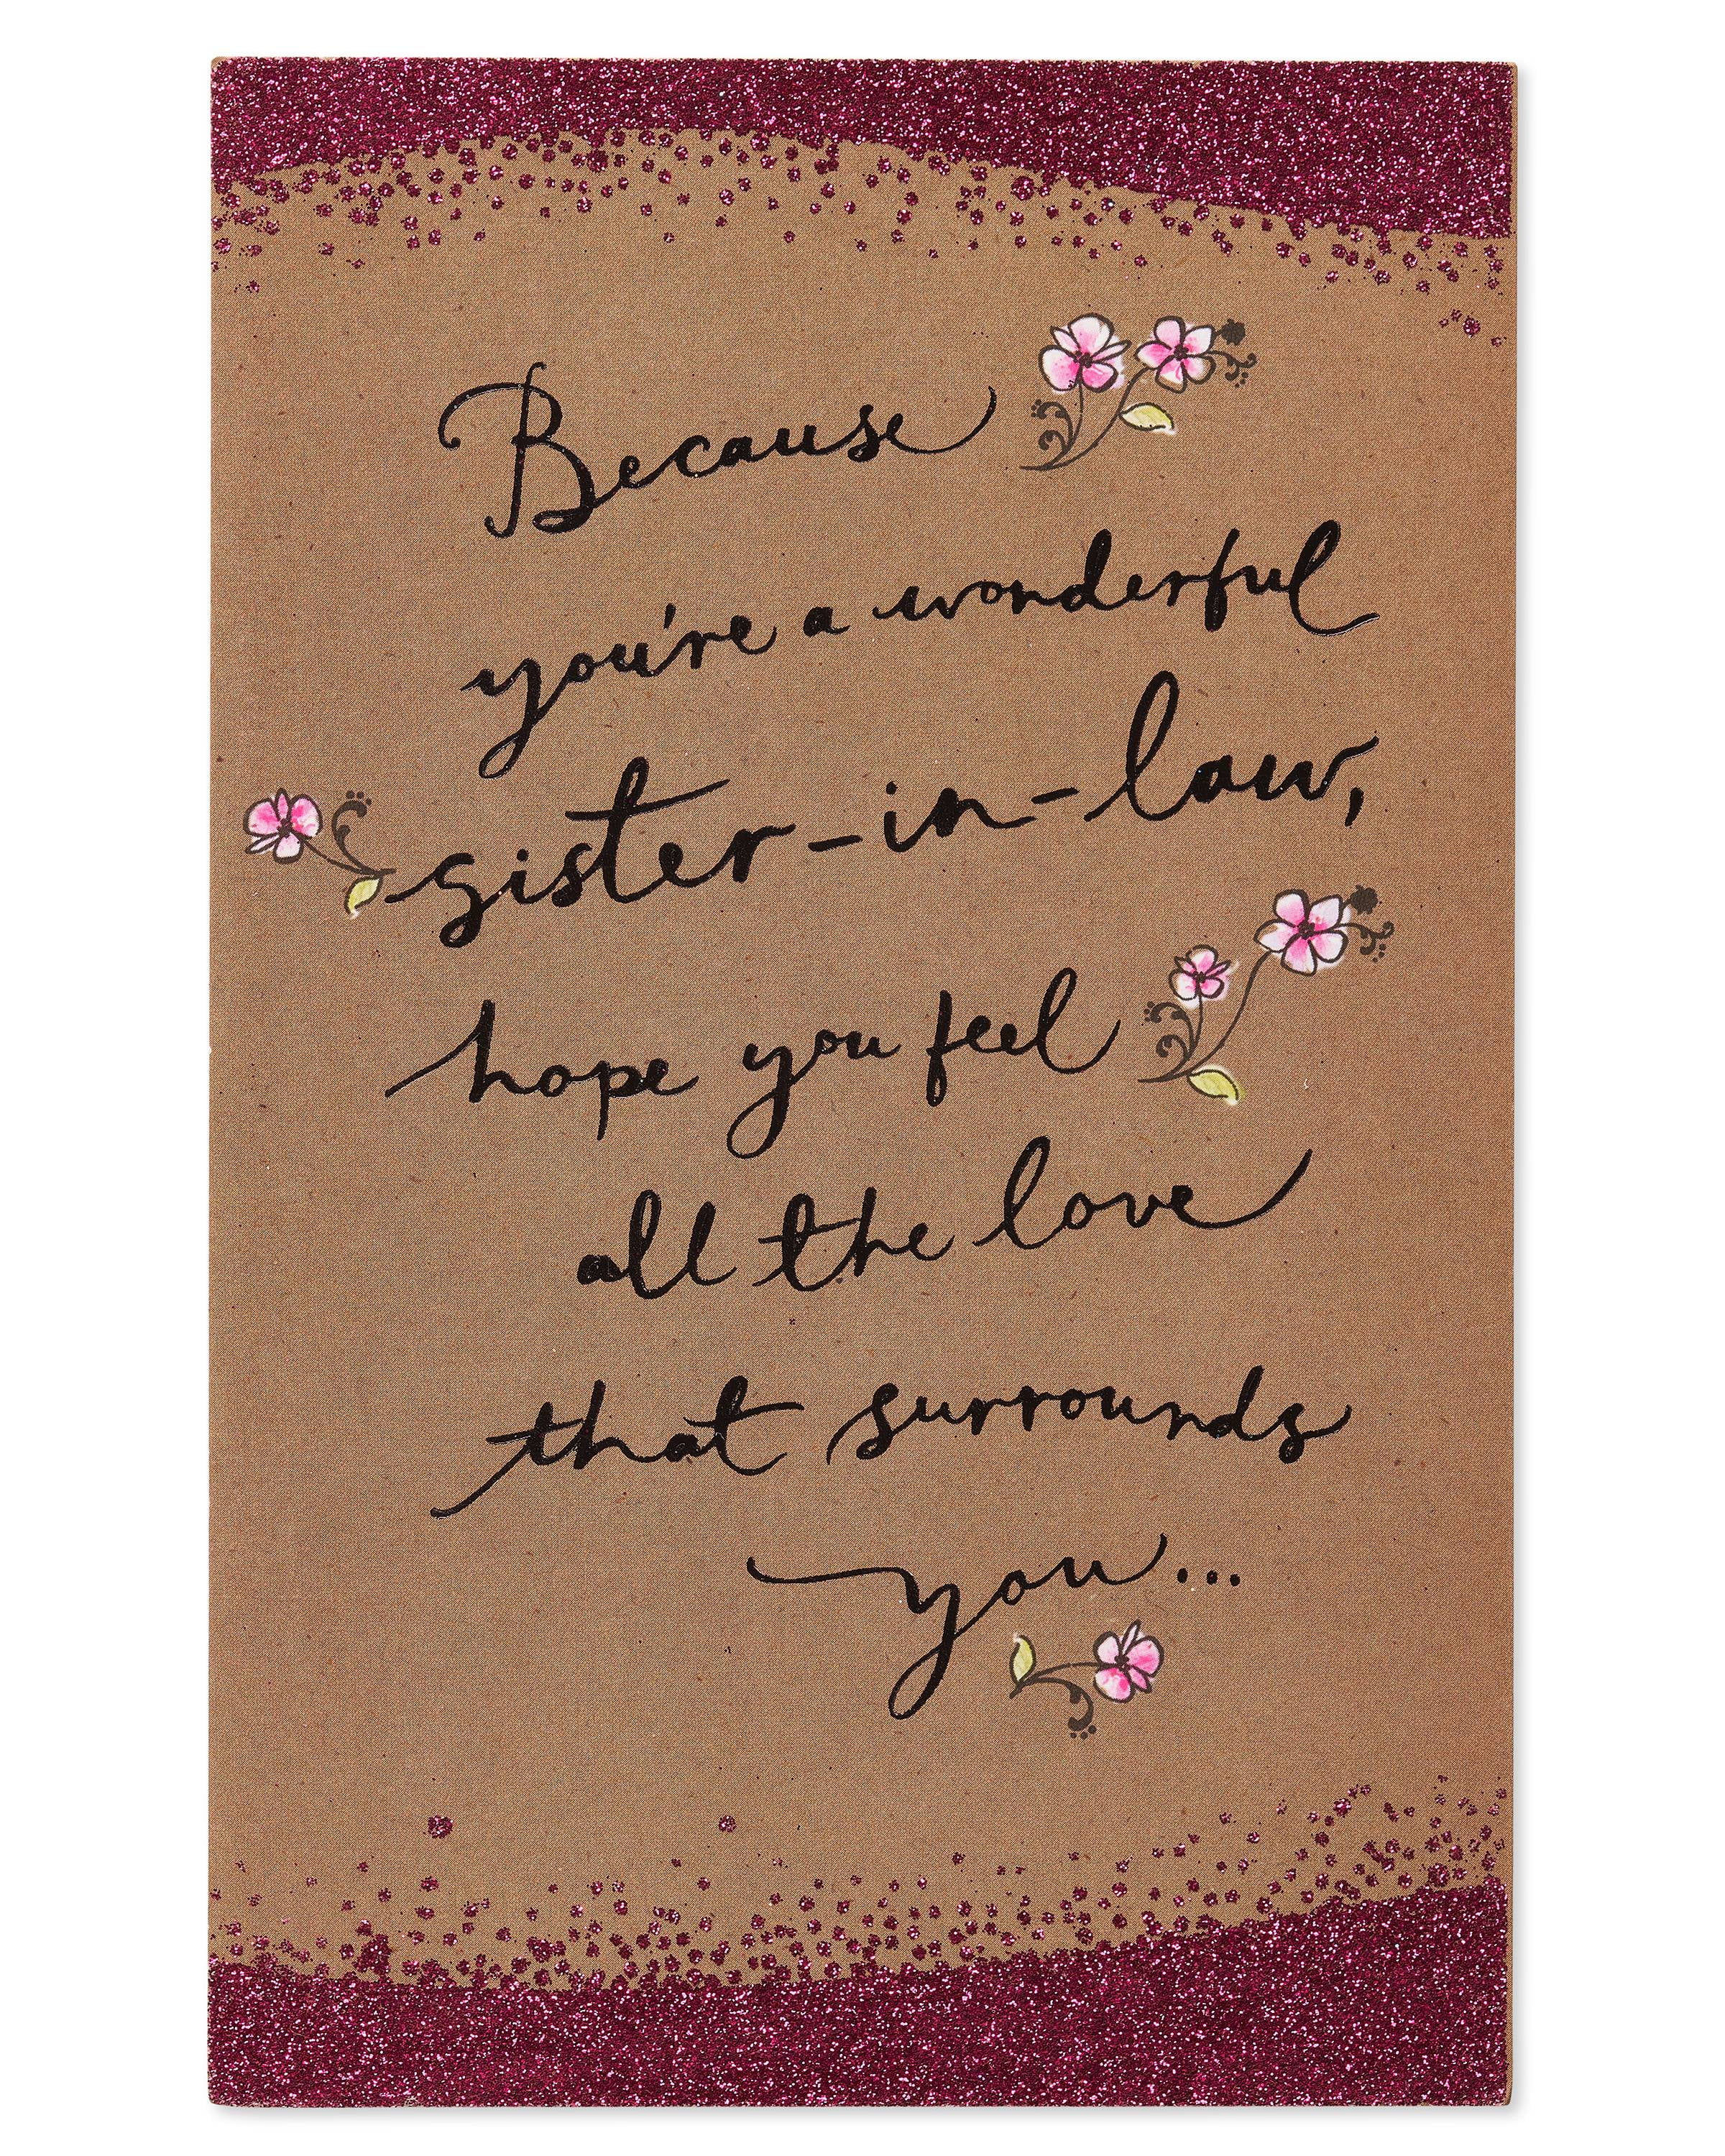 Because
you're a wonderful
sister-in-law,
hope you feel
all the love
that surrounds
you...